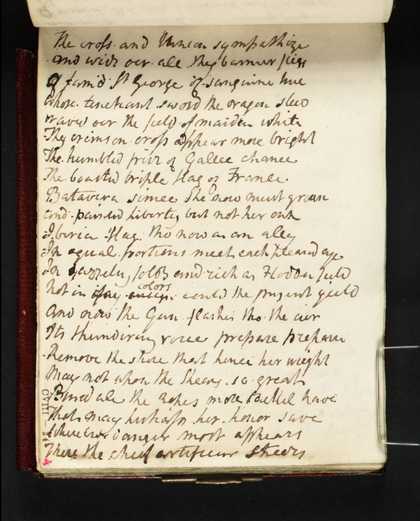 The cross and Union sympathize
and wide oer all the banner flies
of fam'd St George of sanguine hue
whose trenchant sword the dragon slew
waves oer the field of maiden white
The crimson cross appear more bright
The humbled fruit of Gallic chance
The boasted triple flag of France
Batavera since she now must groan
and painted liberty but not her own
Iberia flag tho now as an ally
In equal portions meets each pleasd eye
In folds and rich as Hodden field
not in colors could the present yield
And now the Gun flashes thro the air
Its thundering voice prepare prepare
Remove the shore that hence her weight
May not upon the sheers so great
Bind all the ropes more
that may perhaps her honor save
where ever danger most appears
There the chief artificer steers